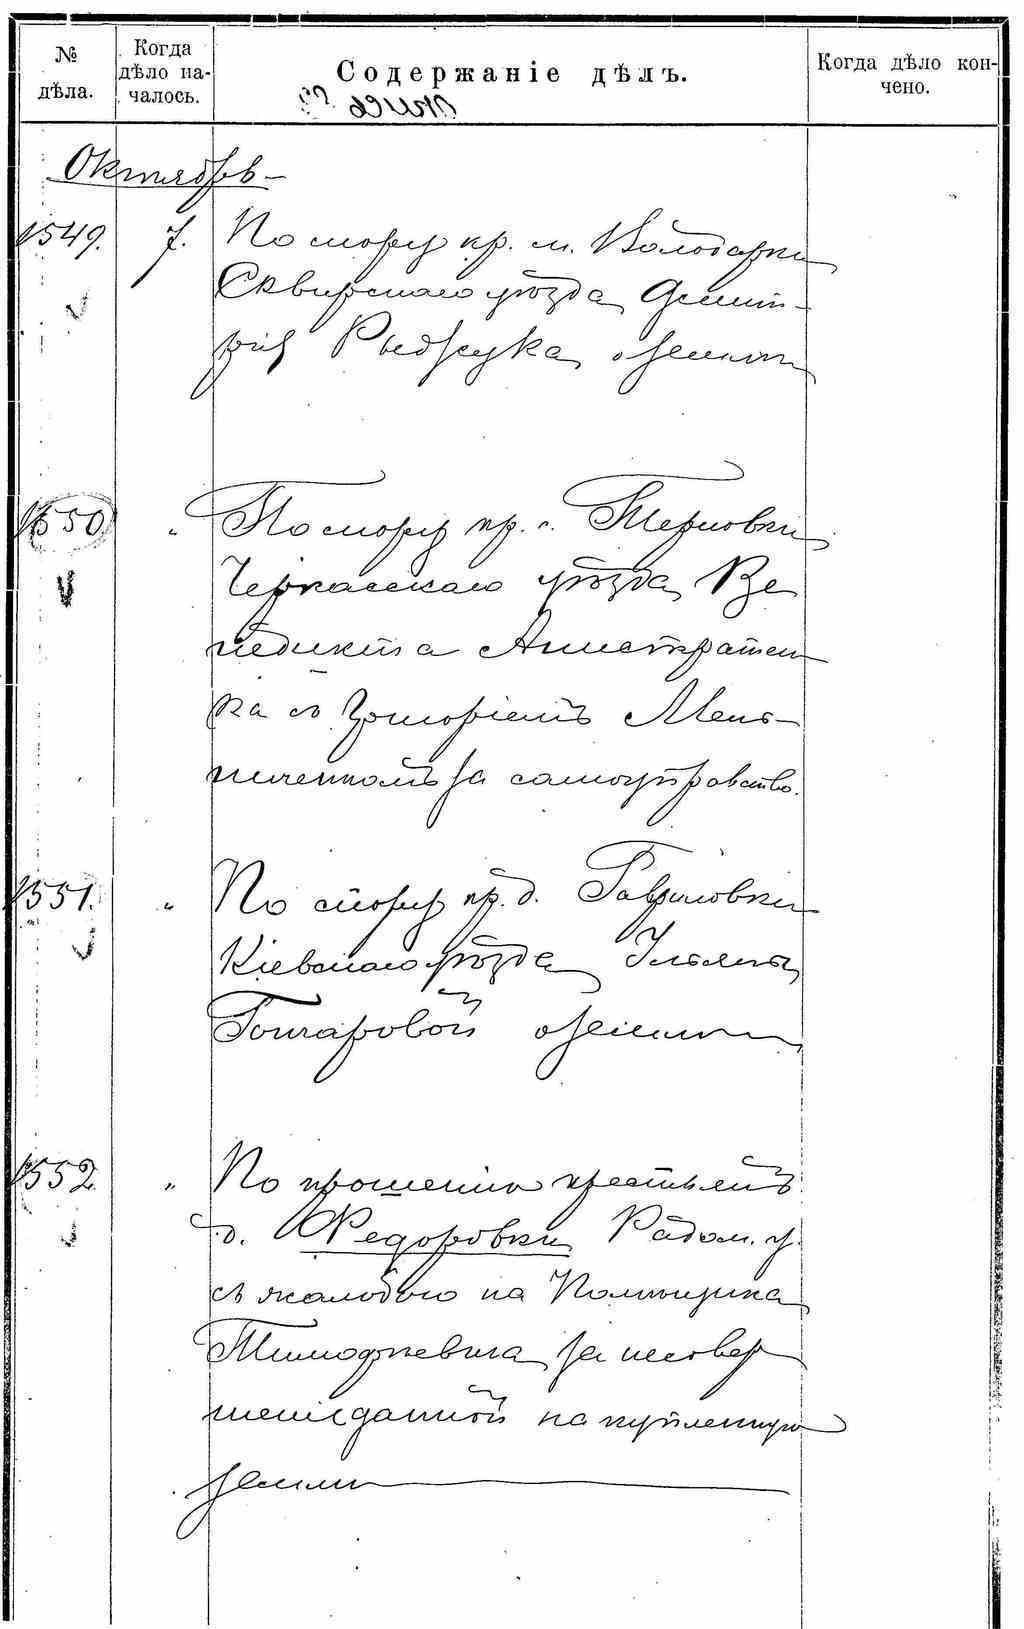 № дѣла.
Когда дѣло началось.
Содержаніе дѣлъ.
Когда дѣло кончено.
Октябрь
1549. 7. По спору кр. м. Володарки
Сквирскаго уѣзда Дмит-
рія Рыджука о землѣ
1550 " По спору кр. с. Терновки
Черкасскаго уѣзда Ве
недикта
ка съ Григоріемъ Мель-
ниченкомъ за самоуправство.
1551. " По спору кр. д. Гавриловки
Кіевскаго уѣзда Ульяны
Гончаровой о землѣ
1552. " По прошенію крестьянъ
д. Федоровки Радом. у.
съ жалобою на Помѣщика
за несовер
шеніе данной на купленную
землю